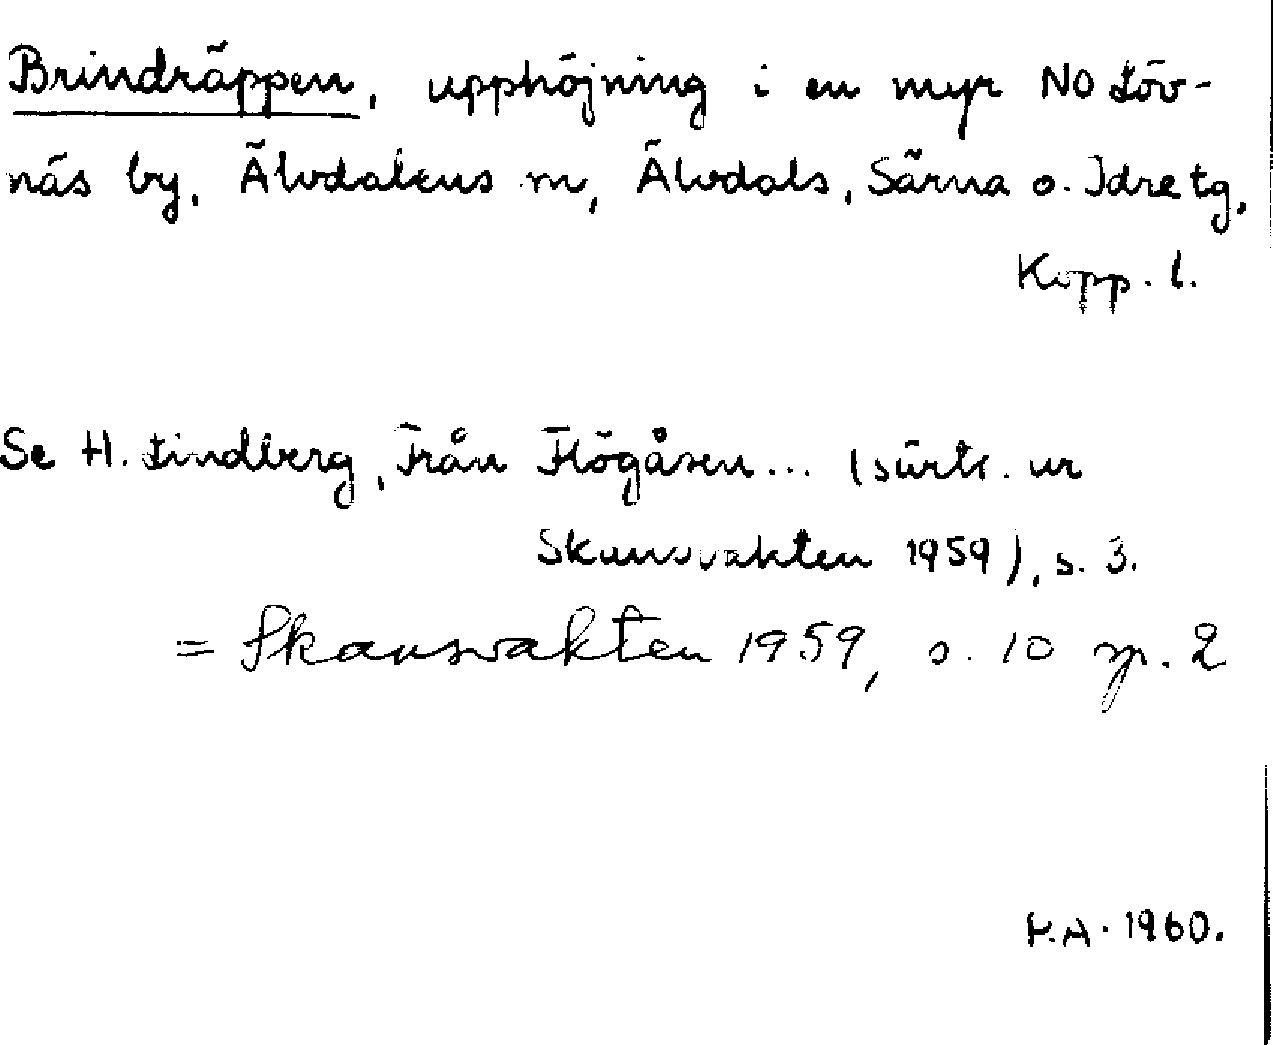 Brindräppen, upphöjning i en myr NO Löv-
näs by, Älvdalens sn, Älvdals, Särna o. Idre tg,
Kopp. l.
Se H. Lindberg, Från Högåsen... (särtr. ur
Skansvakten 1959), s. 3.
= Skansvakten 1959, s. 10 sp. 2
A. 1960.